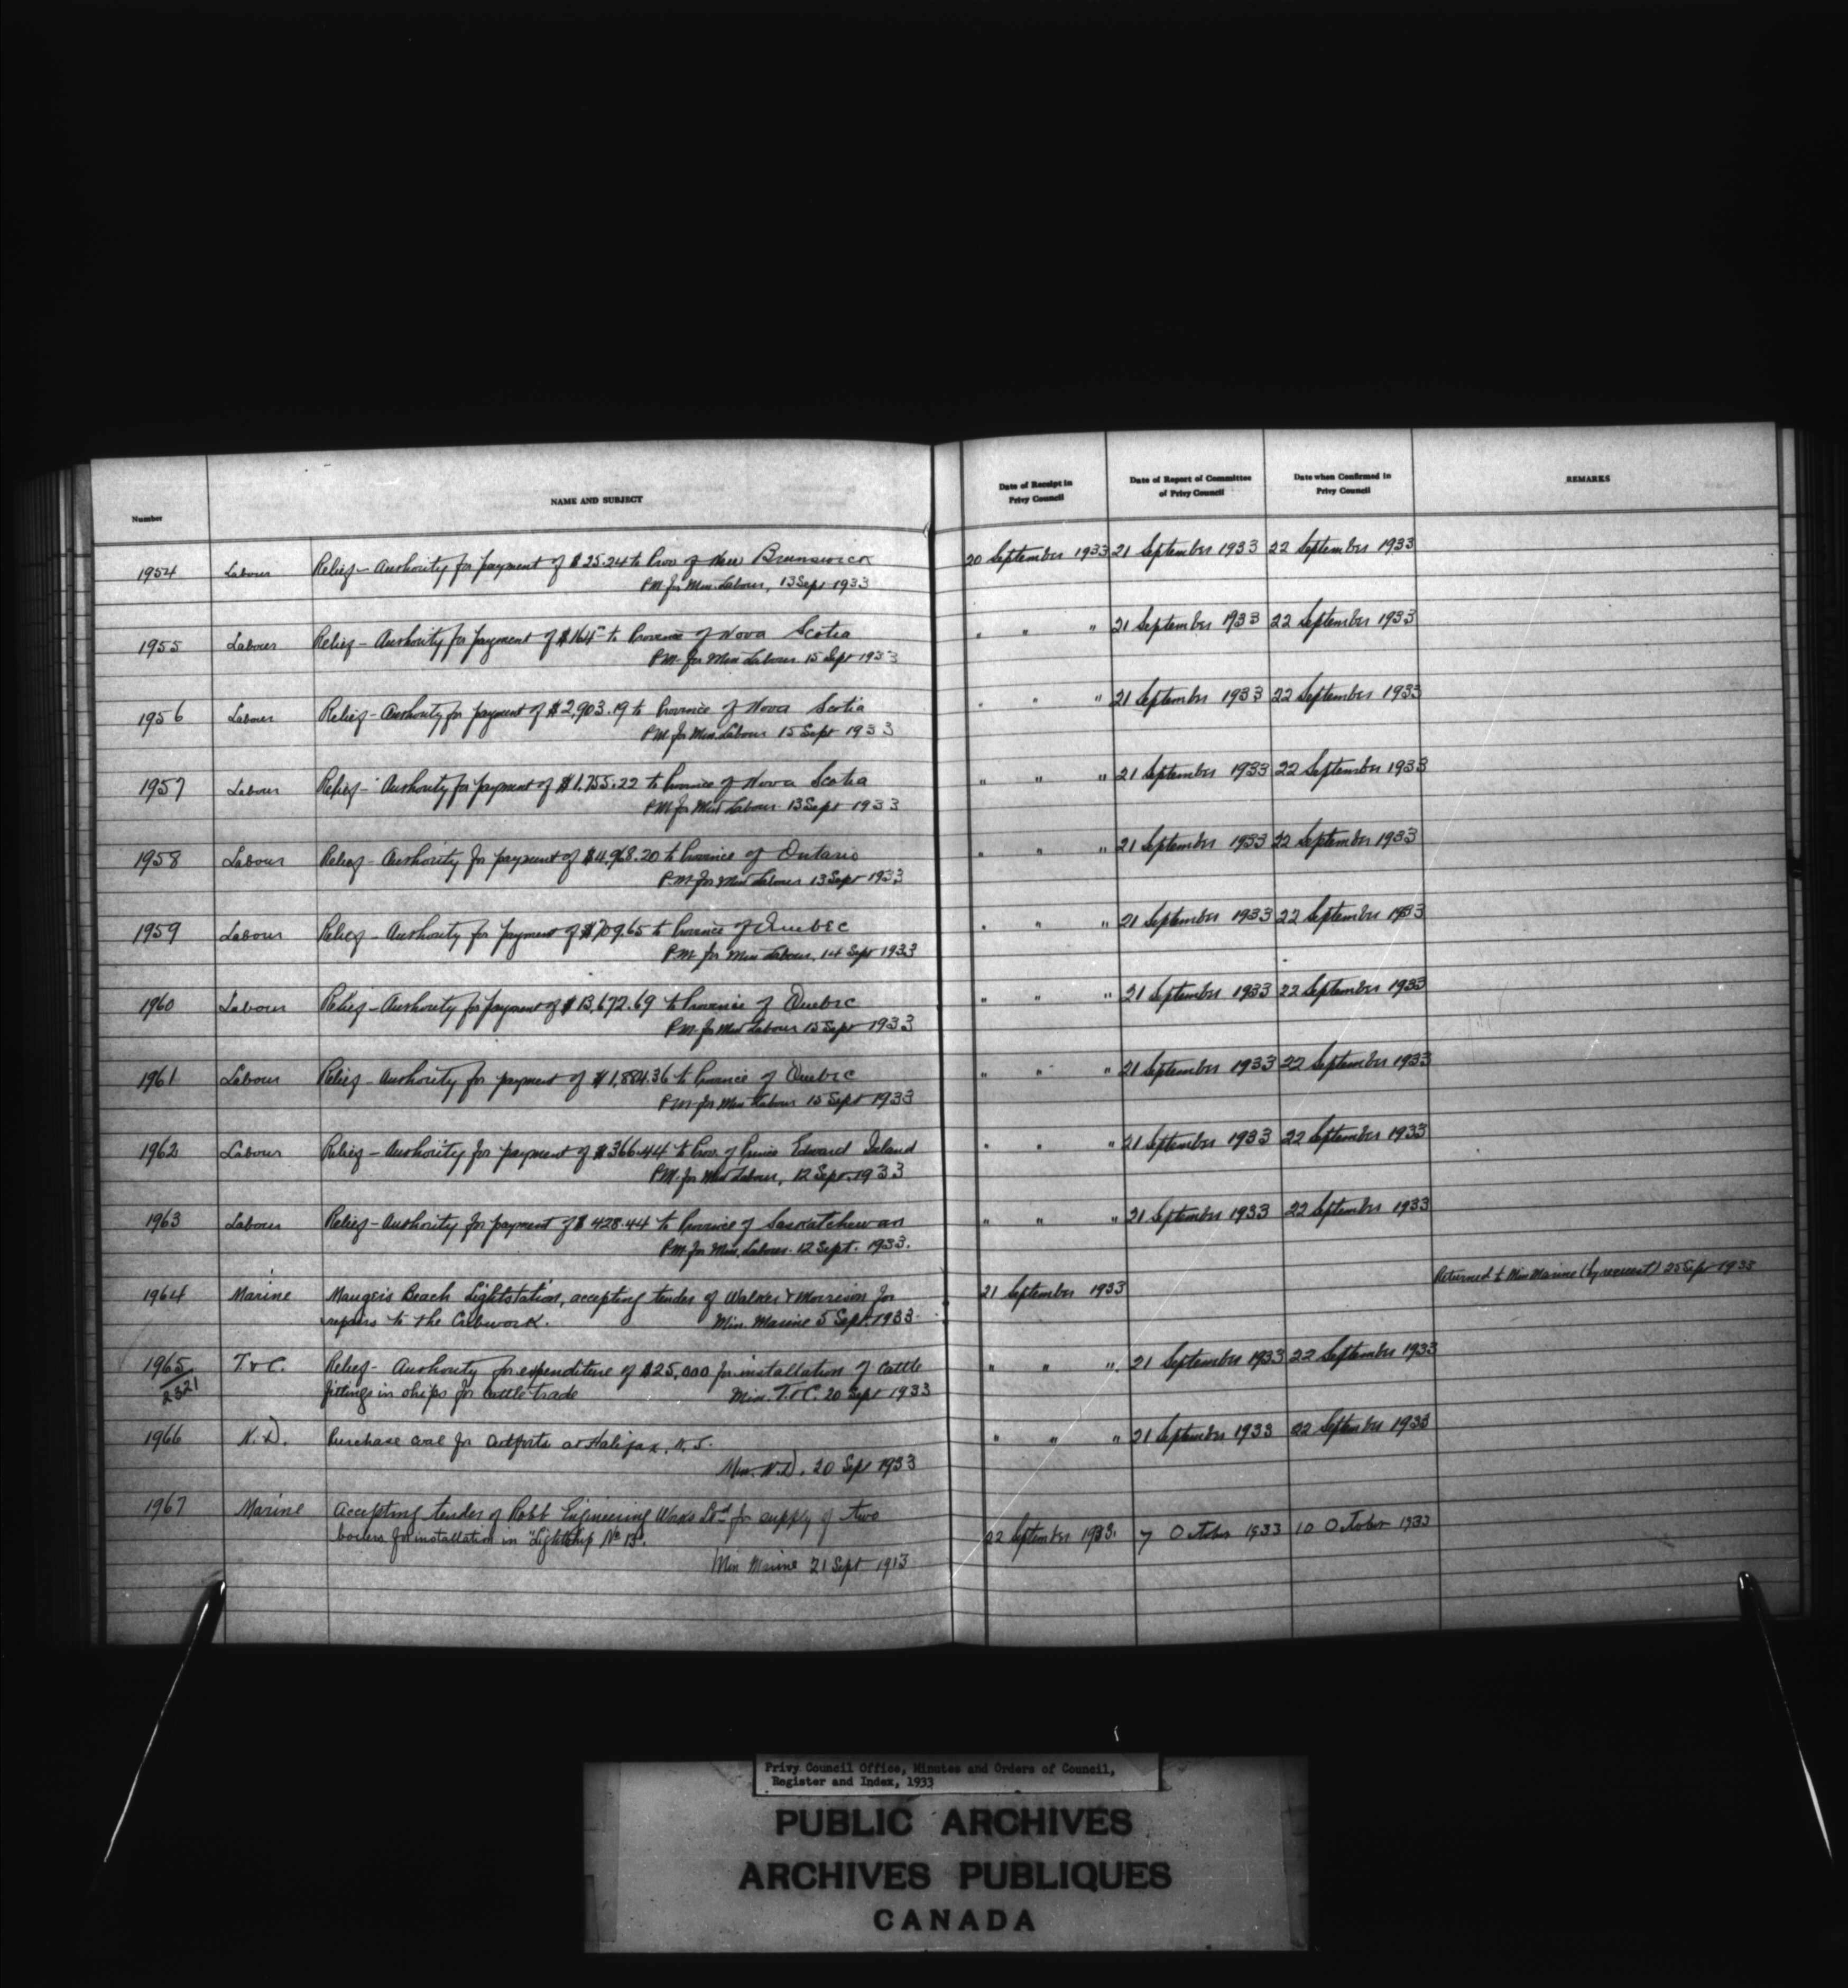 Number
NAME AND SUBJECT
Date of Receipt in Privy Council
Date of Report of Committee of Privy Council
Date when Confirmed in Privy Council
REMARKS
1954 Labour Relief - Authority for payment of $25.24 to Prov of New Brunswick 20 September 1933 21 September 1933 22 September 1933
P.M. for Min. Labour, 13 Sept 1933
1955 Labour Relief - Authority for payment of $164 to Province of Nova Scotia " " " 21 September 1933 22 September 1933
P.M. for Min Labour 15 Sept 1933
1956 Labour Relief - Authority for payment of $2,903.19 to Province of Nova Scotia " " " 21 September 1933 22 September 1933
P.M. for Min. Labour 15 Sept 1933
1957 Labour Relief - Authority for payment of $1,755.22 to Province of Nova Scotia " " " 21 September 1933 22 September 1933
P.M. for Min Labour 13 Sept 1933
1958 Labour Relief - Authority for payment of $4,968.20 to Province of Ontario " " " 21 September 1933 22 September 1933
P.M. for Min Labour 13 Sept 1933
1959 Labour Relief - Authority for payment of $709.65 to Province of Quebec " " " 21 September 1933 22 September 1933
P.M. for Min Labour, 14 Sept 1933
1960 Labour Relief - Authority for payment of $13,672.69 to Province of Quebec " " " 21 September 1933 22 September 1933
P.M. for Min Labour 15 Sept 1933
1961 Labour Relief - Authority for payment of $1,884.36 to Province of Quebec " " " 21 September 1933 22 September 1933
P.M. for Min Labour 15 Sept 1933
1962 Labour Relief - Authority for payment of $366.44 to Prov. of Prince Edward Island " " " 21 September 1933 22 September 1933
P.M. for Min Labour, 12 Sept. 1933
1963 Labour Relief - Authority for payment of $428.44 to Province of Saskatchewan " " " 21 September 1933 22 September 1933
P.M. for Min. Labour. 12 Sept. 1933.
1964 Marine Maugeris Beach Lightstation, accepting tender of Walker & Morrison for 21 September 1933 Returned to Min Marine (by request) 25 Sept 1933
repairs to the Cribwork. Min. Marine 5 Sept. 1933
1965 T. & C. Relief - Authority for expenditure of $25,000 for installation of cattle " " " 21 September 1933 22 September 1933
2321 fittings in ships for cattle trade Min. T. & C. 20 Sept 1933
1966 N. D. Purchase coal for at Halifax, N.S. " " " 21 September 1933 22 September 1933
Min. N.D. 20 Sept 1933
1967 Marine Accepting tender of Robb Engineering Works Ltd for supply of two
boilers for installation in "Lightship No 15". 22 September 1933. 7 October 1933 10 October 1933
Min Marine 21 Sept 1933
Privy Council Office, Minutes and Orders of Council,
Register and Index, 1933
PUBLIC ARCHIVES
ARCHIVES PUBLIQUES
CANADA